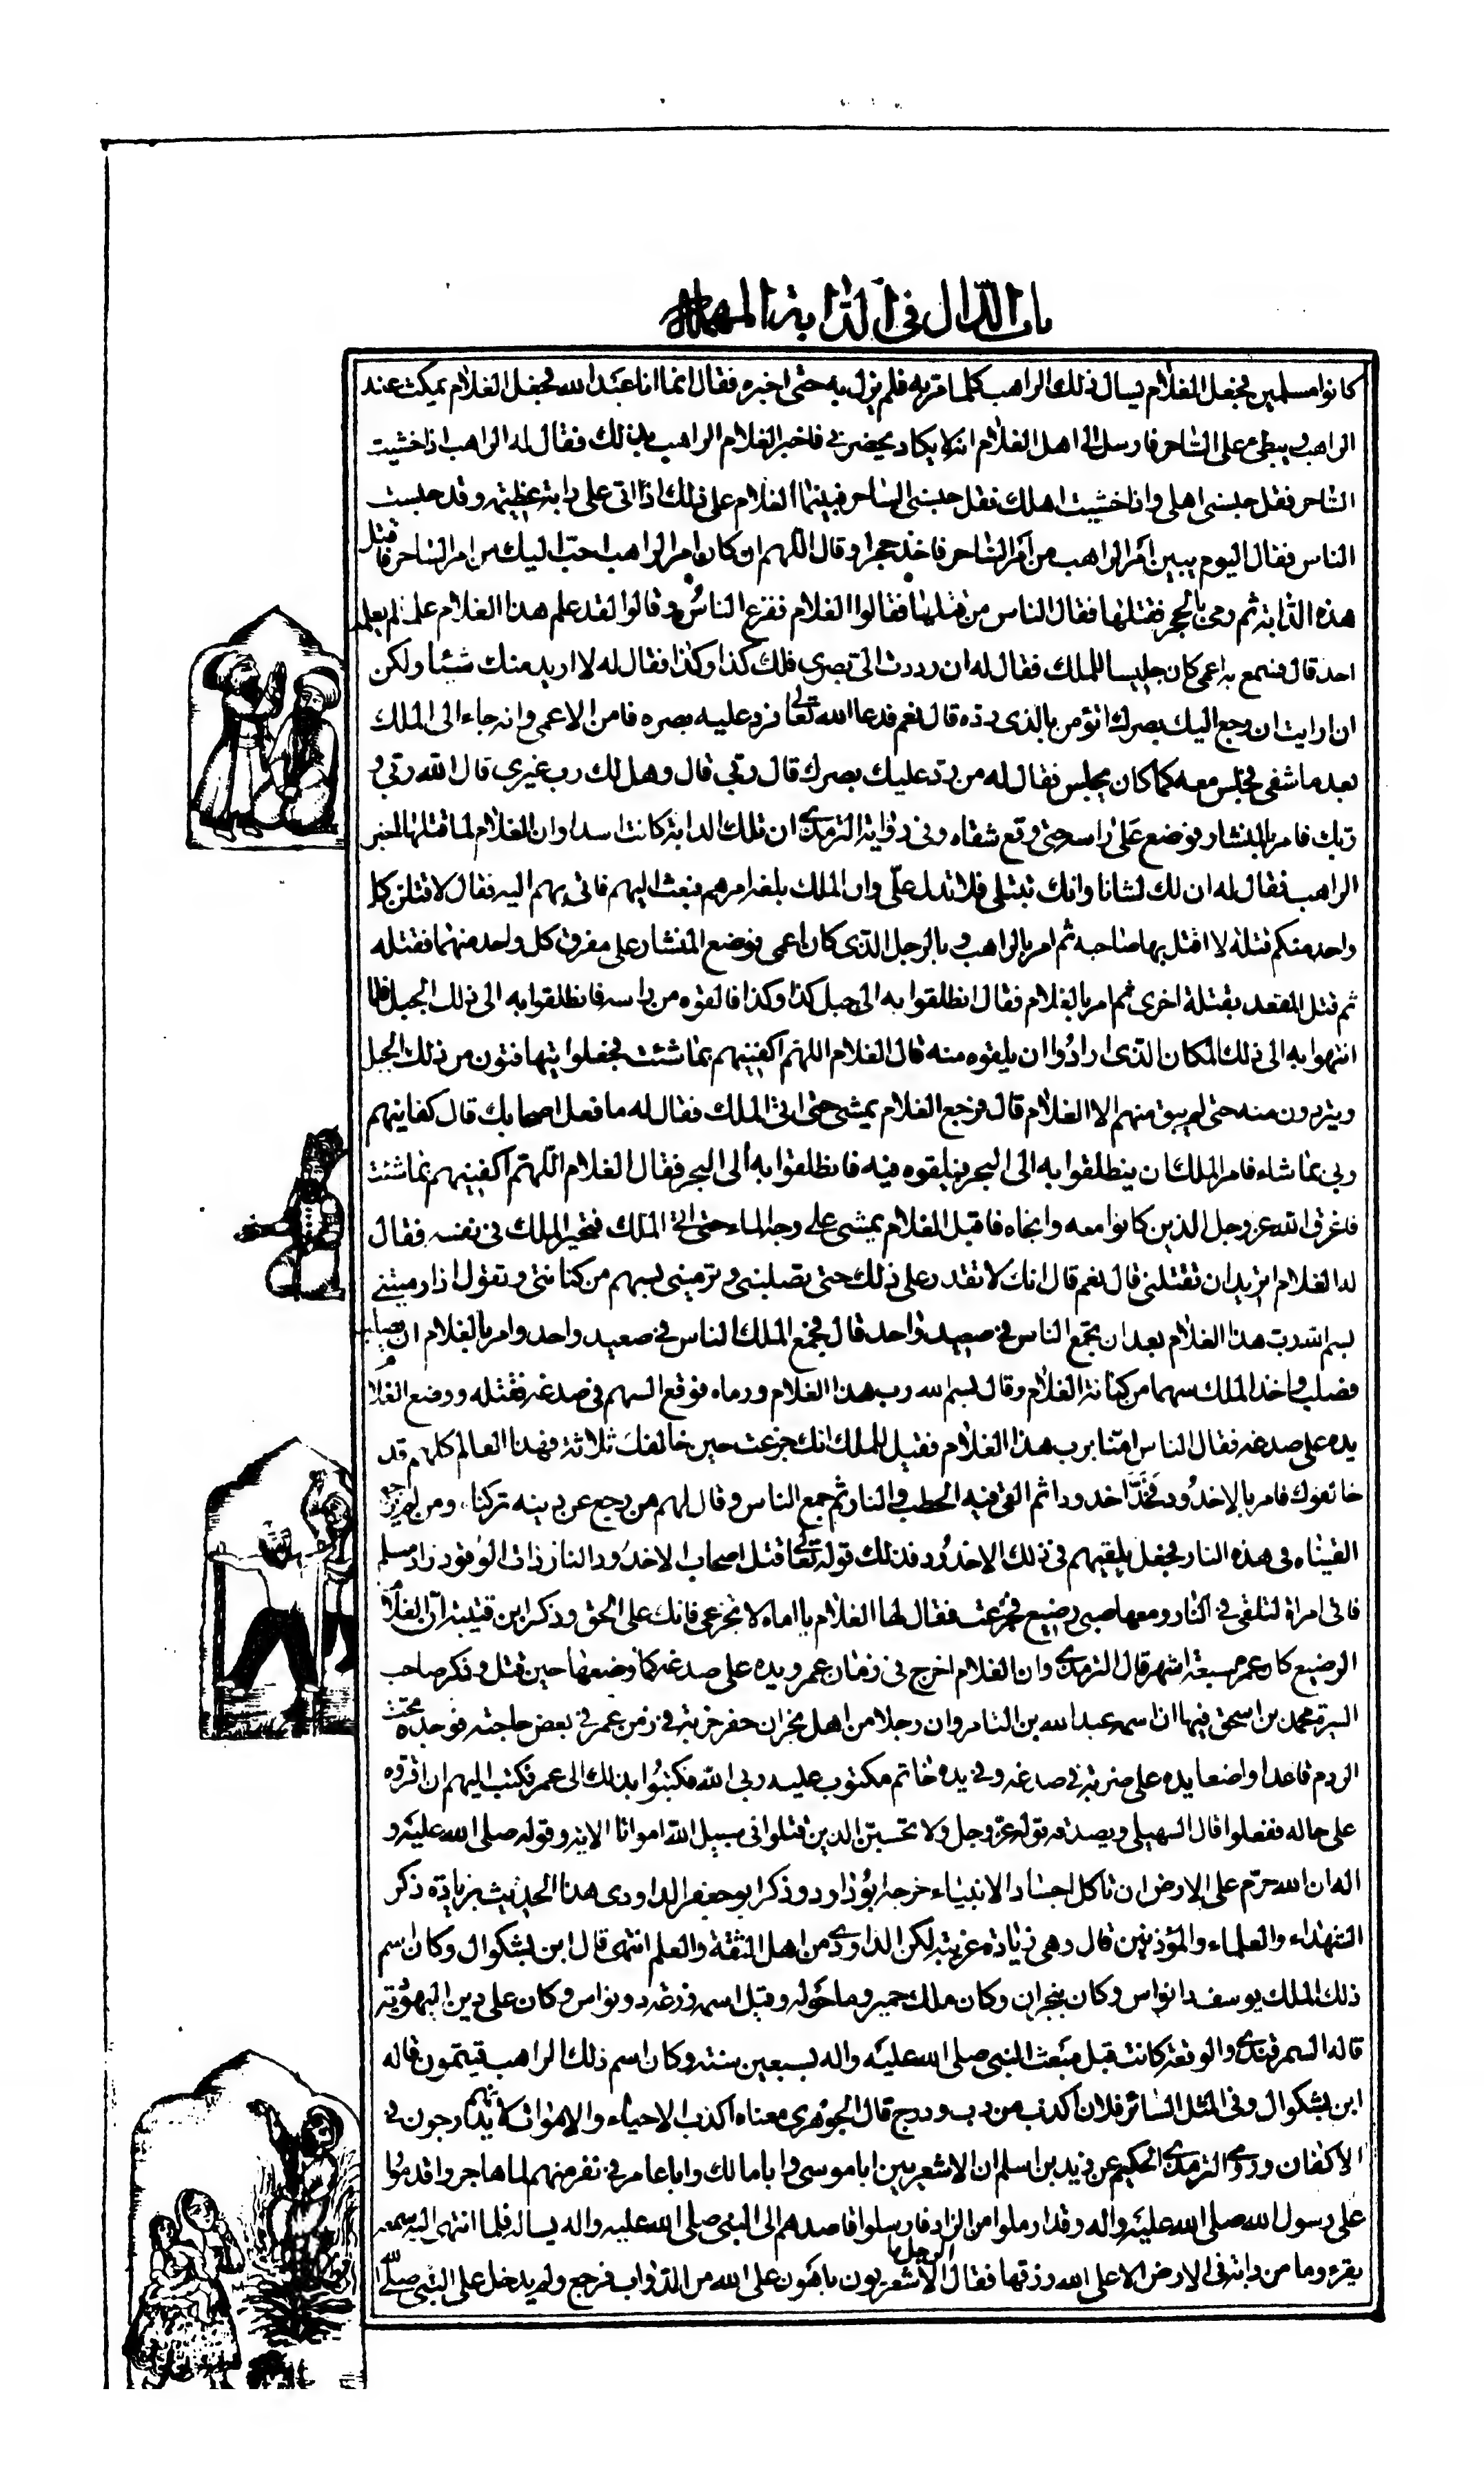 باب الدال في الدابة المهملة
كانوا مسلمين فجعل الغلام يسال ذلك الراهب كلما مر به فلم يزل به حتى اخبره فقال انما انا عبد الله فجعل الغلام يمكث عند
الراهب ويبطئ على الساحر فارسل الى اهل الغلام انه لا يكاد يحضرني فاخبر الغلام الراهب بذلك فقال له الراهب اذا خشيت
الساحر فقل حبسني اهلي واذا خشيت اهلك فقل حبسني الساحر فبينما الغلام على ذلك اذا اتى على دابة عظيمة وقد حبست
الناس فقال اليوم يبين امر الراهب من امر الساحر فاخذ حجرا وقال اللهم ان كان امر الراهب احب اليك من امر الساحر فاقتل
هذه الدابة ثم رمى بالحجر فقتلها فقال الناس من قتلها فقالوا الغلام ففزع الناس وقالوا لقد علم هذا الغلام علما لم يعلمه
احد قال فسمع به اعمى كان جليسا للملك فقال له ان رددت الى بصري فلك كذا وكذا فقال له لا اريد منك شيئا ولكن
ان ارايت ان رجع اليك بصرك اتؤمن بالذي رده قال نعم فدعا الله تعالى فرد عليه بصره فامن الاعمى وانه جاء الى الملك
بعد ما شفى فجلس معه كما كان يجلس فقال له من رد عليك بصرك قال ربي قال وهل لك رب غيري قال الله ربي و
ربك فامر بالمنشار فوضع على راسه حتى وقع شقاه وفي رواية الترمذي ان تلك الدابة كانت اسدا وان الغلام لما قتلها اخبر
الراهب فقال له ان لك لشانا وانك تبتلى فلا تدل علي وان الملك بلغه امرهم فبعث اليهم فاتي بهم اليه فقال لاقتلن كل
واحد منكم قتلة لا اقتل بها صاحبه ثم امر بالراهب وبالرجل الذي كان اعمى فوضع المنشار على مفرق كل واحد منهما فقتله
ثم قتل المقعد بقتلة اخرى ثم امر بالغلام فقال انطلقوا به الى جبل كذا وكذا فالقوه من راسه فانطلقوا به الى ذلك الجبل فلما
انتهوا به الى ذلك المكان الذي ارادوا ان يلقوه منه قال الغلام اللهم اكفنيهم بما شئت فجعلوا يتهافتون من ذلك الجبل
ويتردون منه حتى لم يبق منهم الا الغلام قال فرجع الغلام يمشي حتى اتى الملك فقال له ما فعل اصحابك قال كفانيهم
ربي بما شاء فامر الملك ان ينطلقوا به الى البحر فيلقوه فيه فانطلقوا به الى البحر فقال الغلام اللهم اكفنيهم بما شئت
فاغرق الله عز وجل الذين كانوا معه وانجاه فاقبل الغلام يمشي على وجه الماء حتى اتى الملك فتحير الملك في نفسه فقال
له الغلام اتريد ان تقتلني قال نعم قال انك لا تقدر على ذلك حتى تصلبني وترميني بسهم من كنانتي وتقول اذا رميتني
بسم الله رب هذا الغلام بعد ان تجمع الناس في صعيد واحد قال فجمع الملك الناس في صعيد واحد وامر بالغلام ان يصلب
فصلب واخذ الملك سهما من كنانة الغلام وقال بسم الله رب هذا الغلام ورماه فوقع السهم في صدغه فقتله ووضع الغلام
يده على صدغه فقال الناس امنا برب هذا الغلام فقيل للملك انك جزعت حين خالفك ثلاثة فهذا العالم كلهم قد
خالفوك فامر بالاخدود فخد اخدودا ثم القى فيه الحطب والنار ثم جمع الناس وقال لهم من رجع عن دينه تركناه ومن لم يرجع
القيناه في هذه النار فجعل يلقيهم في ذلك الاخدود فذلك قوله تعالى قتل اصحاب الاخدود النار ذات الوقود زاد مسلم
فاتي امراة لتلقى في النار ومعها صبي رضيع فجزعت فقال لها الغلام يا اماه لا تجزعي فانك على الحق وذكر ابن قتيبة ان الغلام
الرضيع كان عمره سبعة اشهر قال الترمذي وان الغلام اخرج في زمان عمر ويده على صدغه كما وضعها حين قتل وذكر صاحب
السيرة محمد بن اسحق فيها ان اسمه عبد الله بن التامر وان رجلا من اهل نجران حفر خربة في زمن عمر في بعض حاجته فوجده تحت
الردم قاعدا واضعا يده على ضربة في صدغه وفي يده خاتم مكتوب عليه ربي الله فكتبوا بذلك الى عمر فكتب اليهم ان اقروه
على حاله ففعلوا قال السهيلي ويصدقه قوله عز وجل ولا تحسبن الذين قتلوا في سبيل الله امواتا الاية وقوله صلى الله عليه و
اله ان الله حرم على الارض ان تاكل اجساد الانبياء خرجه ابو داود وذكر ابو جعفر الداودي هذا الحديث بزيادة ذكر
الشهداء والعلماء والمؤذنين قال وهي زيادة غريبة لكن الداودي من اهل الثقة والعلم انتهى قال ابن بشكوال وكان اسم
ذلك الملك يوسف ذا نواس وكان بنجران وكان ملك حمير وما حوله وقيل اسمه زرعة ذو نواس وكان على دين اليهودية
قاله السمرقندي والوقعة كانت قبل مبعث النبي صلى الله عليه واله بسبعين سنة وكان اسم ذلك الراهب قيتمون قاله
ابن بشكوال وفي المثل السائر فلان اكذب من دب ودرج قال الجوهري معناه اكذب الاحياء والاموات لانهم يدرجون في
الاكفان وروى الترمذي الحكيم عن زيد بن اسلم ان الاشعريين ابا موسى وابا مالك وابا عامر في نفر منهم لما هاجروا قدموا
على رسول الله صلى الله عليه واله وقد ارملوا من الزاد فارسلوا قاصدهم الى النبي صلى الله عليه واله يساله فلما انتهى اليه سمعه
يقرء وما من دابة في الارض الا على الله رزقها فقال الرجل ما الاشعريون باهون على الله من الدواب فرجع ولم يدخل على النبي صلى الله